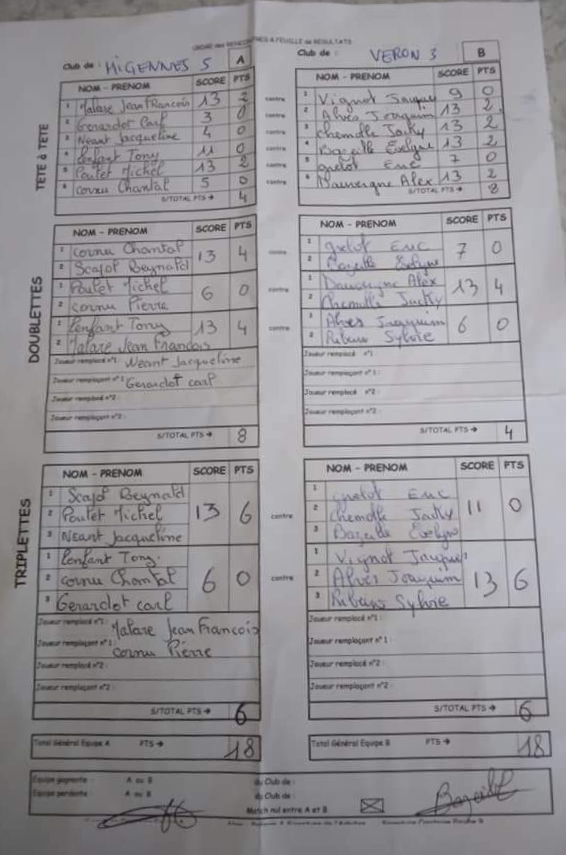 ORDRE des RENCONTRES & FEUILLE de RESULTATS
Club de : MIGENNES 5 A
Club de : VERON 3 B
TETE à TETE
NOM - PRENOM SCORE PTS
1 Malare Jean Francois 13 2
2 Gerardot Carl 3 0
3 Neant Jacqueline 4 0
4 Lenfant Tony 11 0
5 Poulet Michel 13 2
6 Cornu Chantal 5 0
S/TOTAL PTS → 4
contre
contre
contre
contre
contre
contre
NOM - PRENOM SCORE PTS
1 Vignot Jacques 9 0
2 Alves Joaquim 13 2
3 Chemolle Jacky 13 2
4 Bazeille Evelyne 13 2
5 Guelot Eric 7 0
6 Dauvergne Alex 13 2
S/TOTAL PTS → 8
DOUBLETTES
NOM - PRENOM SCORE PTS
1 Cornu Chantal 13 4
2 Scajol Reynald
1 Poulet Michel 6 0
2 Cornu Pierre
1 Lenfant Tony 13 4
2 Malare Jean Francois
Joueur remplacé n°1: Neant Jacqueline
Joueur remplaçant n°1: Gerardot carl
Joueur remplacé n°2:
Joueur remplaçant n°2:
S/TOTAL PTS → 8
contre
contre
contre
NOM - PRENOM SCORE PTS
1 Guelot Eric 7 0
2 Bazeille Evelyne
1 Dauvergne Alex 13 4
2 Chemolle Jacky
1 Alves Joaquim 6 0
2 Ribeiro Sylvie
Joueur remplacé n°1
Joueur remplaçant n°1 :
Joueur remplacé n°2 :
Joueur remplaçant n°2 :
S/TOTAL PTS → 4
TRIPLETTES
NOM - PRENOM SCORE PTS
1 Scajol Reynald
2 Poulet Michel 13 6
3 Neant Jacqueline
1 Lenfant Tony
2 Cornu Chantal 6 0
3 Gerardot carl
Joueur remplacé n°1: Malare Jean Francois
Joueur remplaçant n°1: cornu Pierre
Joueur remplacé n°2 :
Joueur remplaçant n°2 :
S/TOTAL PTS → 6
contre
contre
NOM - PRENOM SCORE PTS
1 Guelot Eric
2 Chemolle Jacky 11 0
3 Bazeille Evelyne
1 Vignot Jacques
2 Alves Joaquim 13 6
3 Ribeiro Sylvie
Joueur remplacé n°1 :
Joueur remplaçant n°1 :
Joueur remplacé n°2 :
Joueur remplaçant n°2 :
S/TOTAL PTS → 6
Total Général Equipe A PTS → 18
Total Général Equipe B PTS → 18
Equipe gagnante : A ou B du Club de :
Equipe perdante : A ou B du Club de :
Match nul entre A et B